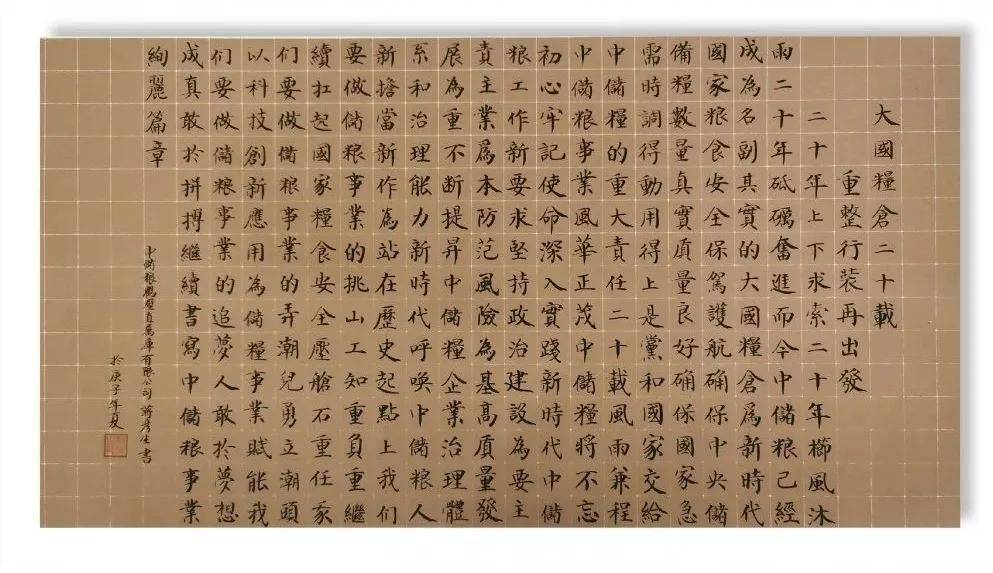 大國糧倉二十載
重整行裝再出發
二十年上下求索二十年櫛風沐
雨二十年砥礪奮進而今中儲粮已經
成為名副其實的大國糧倉爲新時代
國家粮食安全保駕護航确保中央儲
備糧數量真實質量良好确保國家急
需時調得動用得上是黨和國家交給
中儲糧的重大責任二十載風雨兼程
中儲粮事業風華正茂中儲糧將不忘
初心牢記使命深入實踐新時代中儲
粮工作新要求堅持政治建設為要主
責主業爲本防范風險為基高质量發
展為重不断提昇中儲糧企業治理體
系和治理能力新時代呼喚中儲粮人
新擔當新作為站在歷史起點上我们
要做儲粮事業的挑山工知重負重繼
續扛起國家糧食安全壓艙石重任家
们要做儲粮事業的弄潮兒勇立潮頭
以科技創新應用為儲糧事業賦能我
们要做儲粮事業的追夢人敢於夢想
成真敢於拼搏繼續書寫中儲粮事業
絢麗篇章
中儲粮鶴壁直屬庫有限公司 蔣彦生書
於庚子年夏